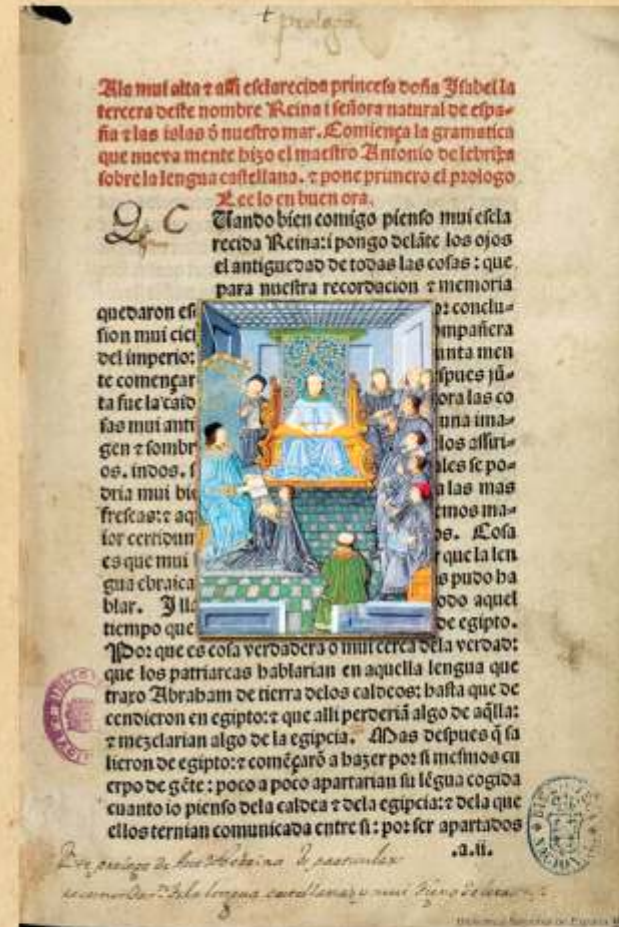 prologo
A la mui alta ⁊ assi esclarecida princesa doña Isabel la
tercera deste nombre Reina i señora natural de espa-
ña ⁊ las islas õ nuestro mar. Comiença la gramatica
que nueva mente hizo el maestro Antonio de lebrixa
sobre la lengua castellana. ⁊ pone primero el prologo
Lee lo en buen ora.
C
Uando bien comigo pienso mui escla
recida Reina: i pongo delãte los ojos
el antiguedad de todas las cosas: que
para nuestra recordacion ⁊ memoria
quedaron es
conclu-
sion mui
ompañera
del imperio:
unta men
te començar
spues jũ-
ta fue la caid
ora las co
sas mui anti
una ima-
gen ⁊ sombr
los assiri-
os. indos. s
ales se po-
dria mui bie
a las mas
frescas: ⁊ aq
emos ma-
ior certidun
os. Cosa
es que mui
que la len
gua ebraica
s pudo ha
blar. I lla
odo aquel
tiempo que
de egipto.
Por que es cosa verdadera o mui cerca dela verdad:
que los patriarcas hablarian en aquella lengua que
traxo Abraham de tierra delos caldeos: hasta que de
cendieron en egipto: ⁊ que alli perderiã algo de aq̃lla:
⁊ mezclarian algo de la egipcia. Mas despues q̃ sa
lieron de egipto: ⁊ começarõ a hazer por si mesmos cu
erpo de gẽte: poco a poco apartarian su lẽgua cogida
cuanto io pienso dela caldea ⁊ dela egipcia: ⁊ dela que
ellos ternian comunicada entre si: por ser apartados
.a.ii.
Biblioteca Nacional de España